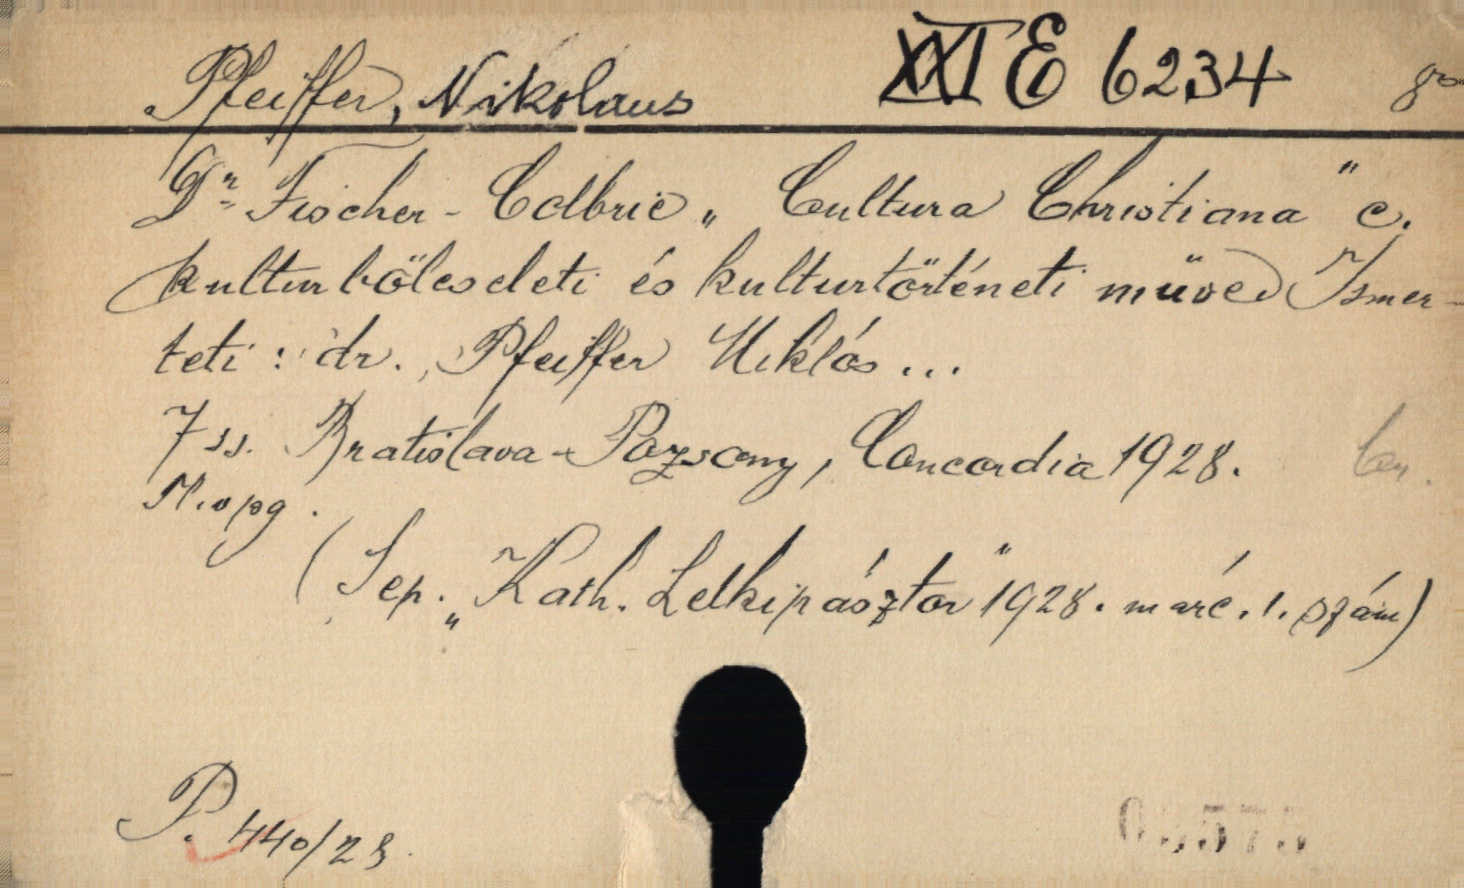 Pfeiffer, Nikolaus XXI E 6234 8°
Dr Fischer-Colbrie „Cultura Christiana" c.
kulturbölcseleti és kulturtörténeti müve. Ismer-
teti: dr. Pfeiffer Miklós...
7 ss. Bratislava-Pozsony, Concordia 1928.
(Sep. „Kath. Lelkipásztor" 1928. márc. 1. szám)
P. 440/28